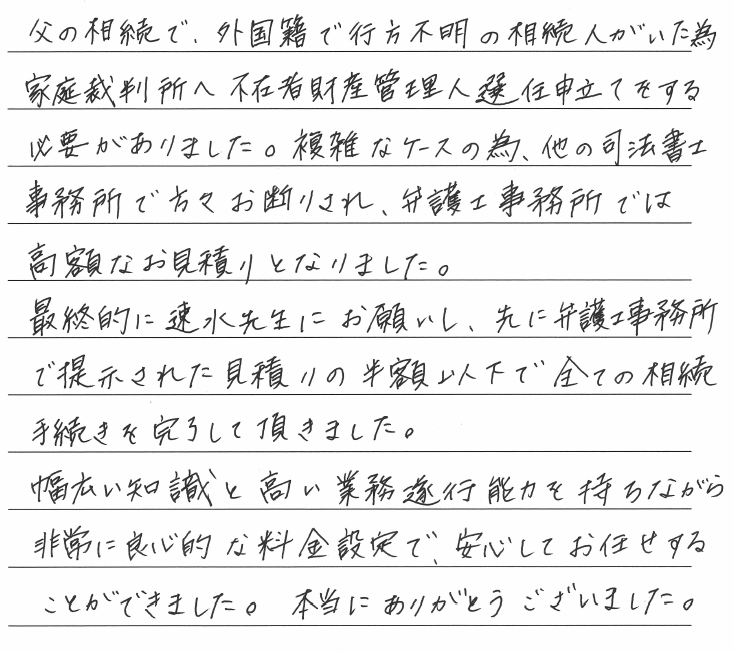 父の相続で、外国籍で行方不明の相続人がいた為
家庭裁判所へ不在者財産管理人選任申立てをする
必要がありました。複雑なケースの為、他の司法書士
事務所で方々お断りされ、弁護士事務所では
高額なお見積りとなりました。
最終的に速水先生にお願いし、先に弁護士事務所
で提示された見積りの半額以下で全ての相続
手続きを完了して頂きました。
幅広い知識と高い業務遂行能力を持ちながら
非常に良心的な料金設定で、安心してお任せする
ことができました。本当にありがとうございました。